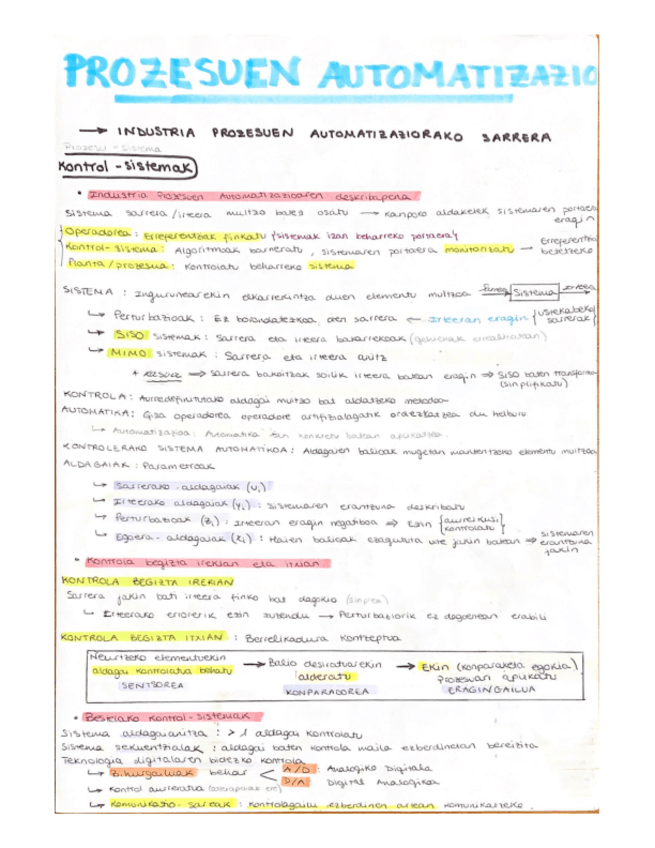 PROZESUEN AUTOMATIZAZIO
→ INDUSTRIA PROZESUEN AUTOMATIZAZIORAKO SARRERA
Prozesu - sistema
Kontrol - sistemak
• Industria Prozesuen Automatizazioaren deskribapena
Sistema sarrera / irteera multzo batez osatu → kanpoko aldaketek sistemaren portaera eragin
Operadorea : Erreferentziak finkatu {sistemak izan beharreko portaera}
Kontrol - sistema : Algoritmoak barneratu, sistemaren portaera monitorizatu → Erreferentzia betetzeko
Planta / prozesua : Kontrolatu beharreko sistema
SISTEMA : Ingurunearekin elkarrekintza duen elementu multzoa Sarrera Sistema irteera
↳ Perturbazioak : Ez borondatezkoa den sarrera ← irteeran eragin {ustekabeko sarrerak}
↳ SISO sistemak : Sarrera eta irteera bakarrekoak
↳ MIMO sistemak : Sarrera eta irteera anitz
* → sarrera bakoitzak soilik irteera batean eragin ⇒ SISO baten transforma (sinplifikatu)
KONTROLA : Aurredefinitutako aldagai multzo bat aldatzeko metodoa
AUTOMATIKA : Giza operadorea operadore artifizialagatik ordezkatzea du helburu
↳ Automatizazioa : Automatika kasu konkretu batean aplikatzea.
KONTROLERAKO SISTEMA AUTOMATIKOA : Aldagaien balioak mugetan mantentzeko elementu multzoa
ALDAGAIAK : Parametroak
↳ Sarrerako aldagaiak (ui)
↳ Irteerako aldagaiak (yi) : sistemaren erantzuna deskribatu
↳ Perturbazioak (zi) : Irteeran eragin negatiboa ⇒ Ezin {aurreikusi kontrolatu}
↳ Egoera - aldagaiak (xi) : Haien balioak ezagututa une jakin batean ⇒ sistemaren erantzuna jakin
• Kontrola begizta irekian eta itxian
KONTROLA BEGIZTA IREKIAN
Sarrera jakin bati irteera finko bat dagokio (sinplea)
↳ Irteerako errorerik ezin zuzendu → Perturbaziorik ez dagoenean erabili
KONTROLA BEGIZTA ITXIAN : Berrelikadura kontzeptua
Neurtzeko elementuekin aldagai kontrolatua behatu SENTSOREA
→ Balio desiratuarekin alderatu KONPARADOREA
→ Ekin (konparaketa egokia) Prozesuari aplikatu ERAGINGAILUA
• Bestelako kontrol - sistemak
Sistema aldagaianitza : > 1 aldagai kontrolatu
Sistema sekuentzialak : aldagai baten kontrola maila ezberdinetan bereizita
Teknologia digitalaren bidezko kontrola
↳ Bihurgailuak behar < A/D : Analogiko Digitala
D/A : Digital Analogikoa
↳ Kontrol aurreratua
↳ Komunikazio - sareak : Kontrolagailu ezberdinen artean komunikatzeko.